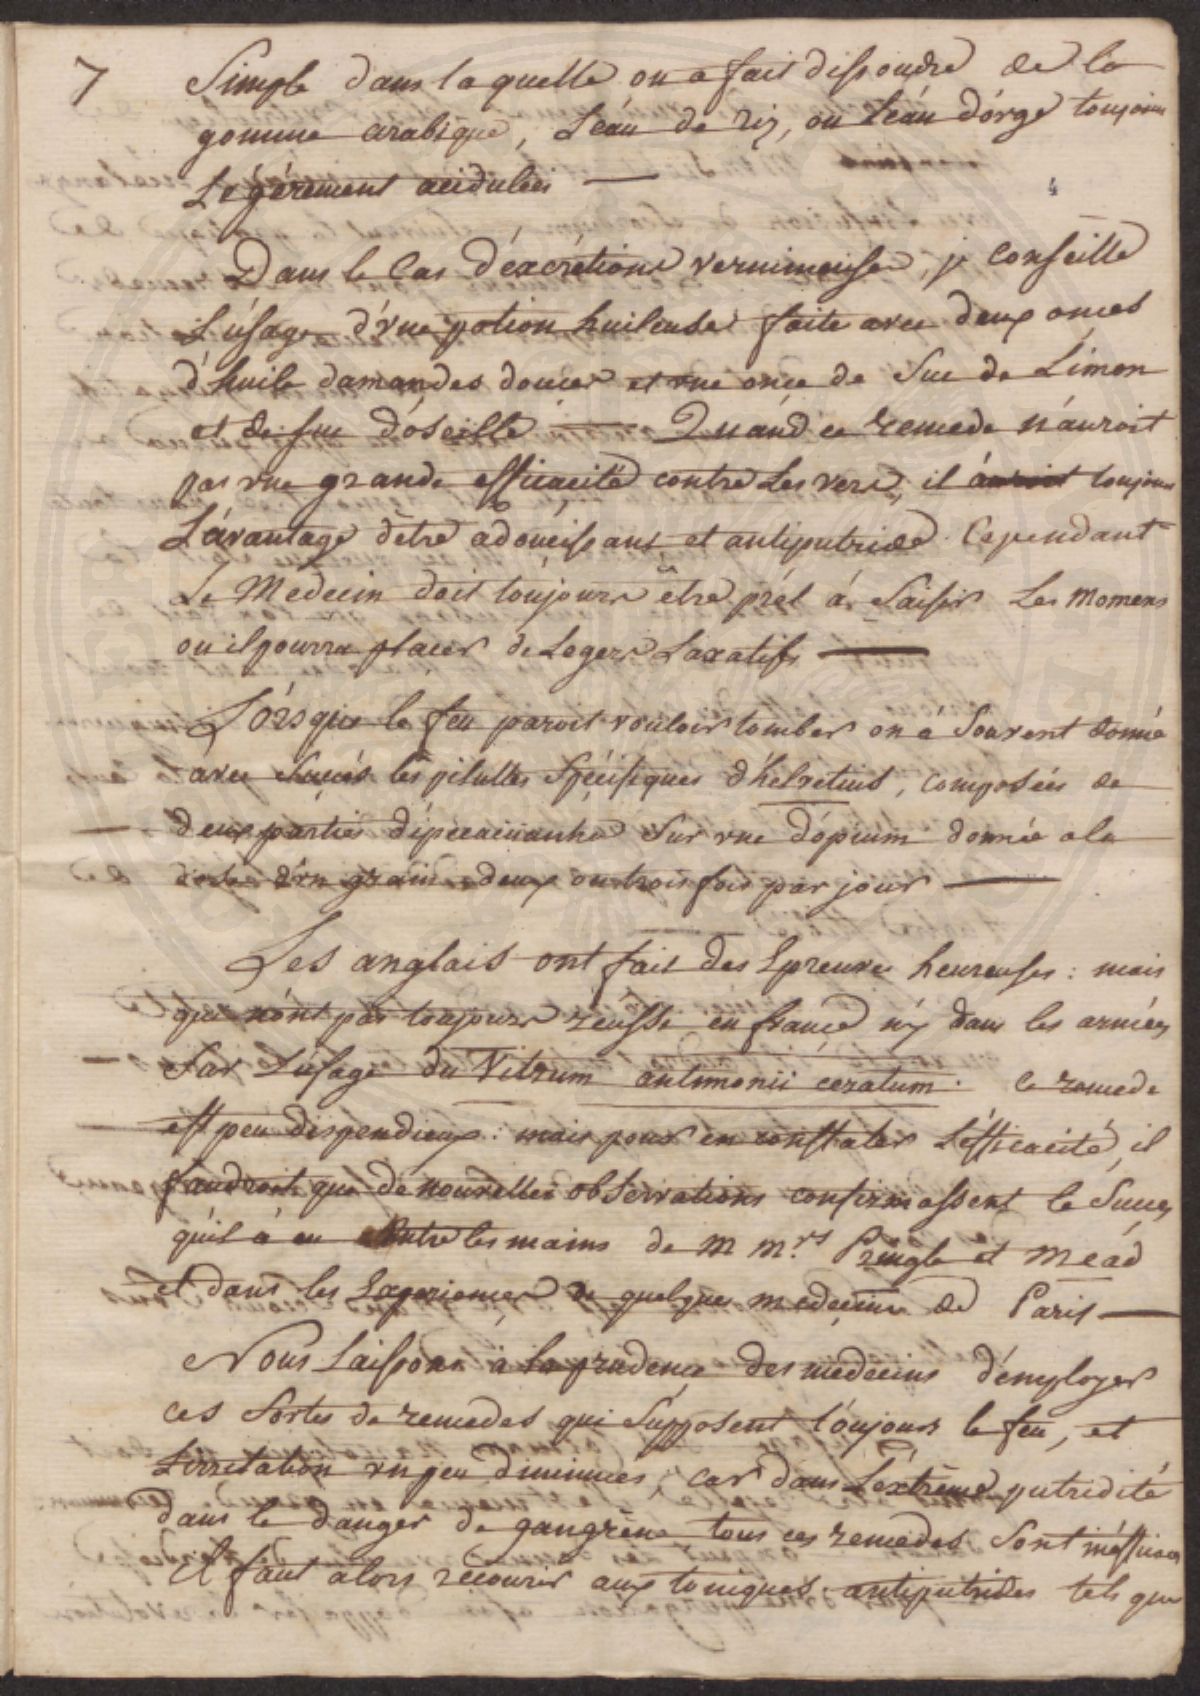 7
Simple dans laquelle on a fait dissoudre de la
gomme arabique, L'éau de riz, ou L'éau d'órge toujours
Légérement acidulées —
Dans le Cas d'éxcrétions vernimeuses, je conseille
L'úsage d'vne potion huileuse faite avec deux onces
d'huile damandes douces et vne once de Suc de Limon
et de suc d'óseille — Quánd ce remede n'áuroit
pas vne grande efficacité contre Les vers, il auroit toujours
L'ávantage d'être adoucissant et antiputride. Cependant
Le Medecin doit toujours être prét á Saisir Les Momens
ou il pourra placer de Legers Laxatifs —
Lórsque le feu paroit vouloir tomber on á Souvent donné
avec Succés les pilulles Spécifiques d'helvetius, composées de
— deux parties d'ipecacuanha Sur vne d'ópium donnée a la
dose d'vn grain deux ou trois fois par jour —
Les anglais ont fait des Epreuves heureuses : mais
qui n'ónt pas toujours réussi en françe n'y dans les armées
— Par L'úsage du Vitrum antimonii ceratum. Ce remede
— est peu dispendieux : mais pour en constater L'éfficacité, il
faudroit que de nouvelles observations confirmassent le Succes
qu'il á eu Entre les mains de M M.rs Pringle et Mead
et dans les Experiences de quelques medecins de Paris —
Nous Laissons á la prudence des medecins d'émployer
ces Sortes de remedes qui Supposent toujours le feu, et
L'irritation vn peu diminués, car dans L'éxtrême putridité
dans le danger de gangrêne tous ces remedes Sont inéfficaces
Il faut alors recourir aux toniques antiputrides tels que